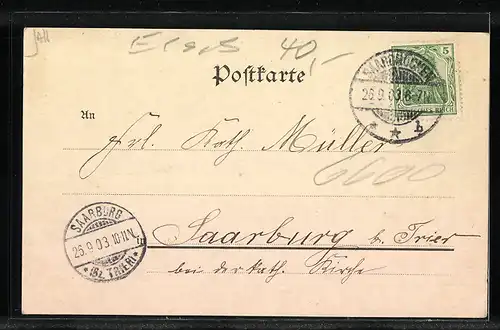 Elsaß 40,-
Postkarte
5
SAARBRÜCKEN
26.9.03.6-7N
* * b
An
Frl. Kath. Müller
6600
SAARBURG
26.9.03.10-11N.
* (Bz. TRIER) *
in
Saarburg b. Trier
bei der kath. Kirche